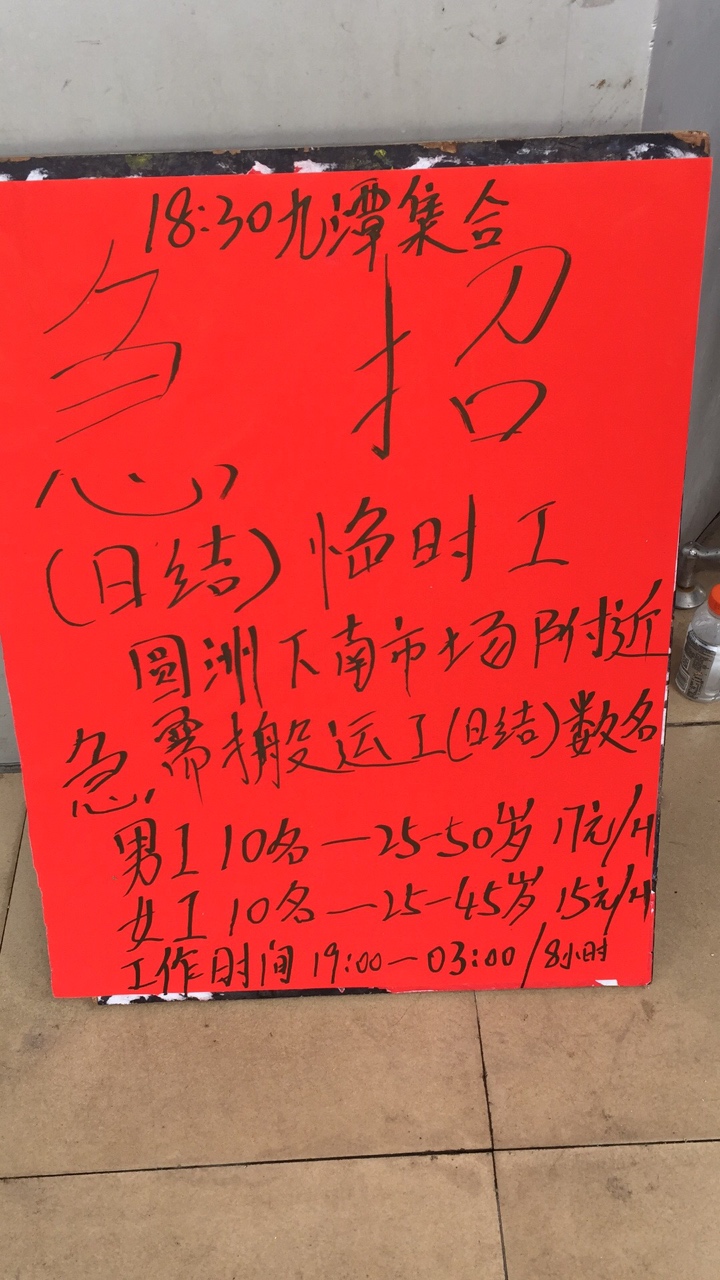 18:30九潭集合
急招
(日结)临时工
圆洲下南市场附近
急需搬运工(日结)数名
男工10名—25-50岁 17元/H
女工10名—25-45岁 15元/H
工作时间19:00—03:00/8小时